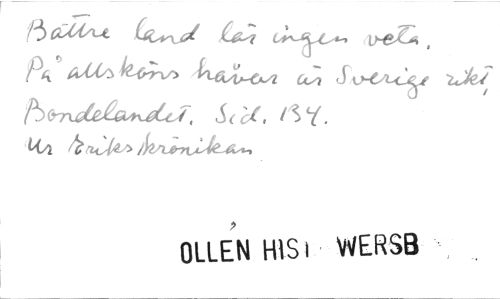 Bättre land lär ingen veta.
På allsköns håvor är Sverige rikt,
Bondelandet. Sid. 134.
Ur Erikskrönikan
OLLÉN HIST WERSB